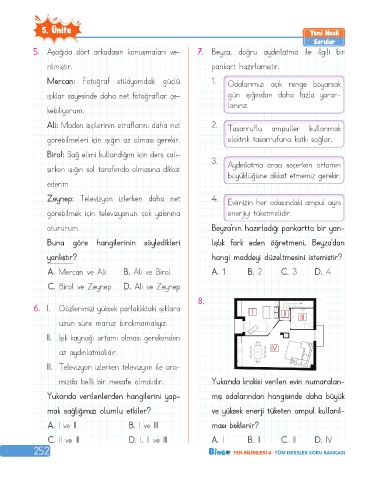 5. Ünite
Yeni Nesil
Sorular
5. Aşağıda dört arkadaşın konuşmaları ve-
rilmiştir.
Mercan: Fotoğraf stüdyomdaki güçlü
ışıklar sayesinde daha net fotoğraflar çe-
kebiliyorum.
Ali: Maden işçilerinin etraflarını daha net
görebilmeleri için ışığın az olması gerekir.
Birol: Sağ elimi kullandığım için ders çalı-
şırken ışığın sol tarafımda olmasına dikkat
ederim.
Zeynep: Televizyon izlerken daha net
görebilmek için televizyonun çok yakınına
otururum.
Buna göre hangilerinin söyledikleri
yanlıştır?
A. Mercan ve Ali B. Ali ve Birol
C. Birol ve Zeynep D. Ali ve Zeynep
6. I. Gözlerimizi yüksek parlaklıktaki ışıklara
uzun süre maruz bırakmamalıyız.
II. Işık kaynağı ortamı olması gerekenden
az aydınlatmalıdır.
III. Televizyon izlerken televizyon ile ara-
mızda belli bir mesafe olmalıdır.
Yukarıda verilenlerden hangilerini yap-
mak sağlığımızı olumlu etkiler?
A. I ve II B. I ve III
C. II ve III D. I, II ve III
7. Beyza, doğru aydınlatma ile ilgili bir
pankart hazırlamıştır.
1. Odalarımızı açık renge boyarsak
gün ışığından daha fazla yarar-
lanırız.
2. Tasarruflu ampuller kullanmak
elektrik tasarrufuna katkı sağlar.
3. Aydınlatma aracı seçerken ortamın
büyüklüğüne dikkat etmemiz gerekir.
4. Evimizin her odasındaki ampul aynı
enerjiyi tüketmelidir.
Beyza'nın hazırladığı pankartta bir yan-
lışlık fark eden öğretmeni, Beyza'dan
hangi maddeyi düzeltmesini istemiştir?
A. 1 B. 2 C. 3 D. 4
8.
I
II
III
IV
Yukarıda krokisi verilen evin numaralan-
mış odalarından hangisinde daha büyük
ve yüksek enerji tüketen ampul kullanıl-
ması beklenir?
A. I B. II C. III D. IV
252
BinGo FEN BİLİMLERİ 4 - TÜM DERSLER SORU BANKASI